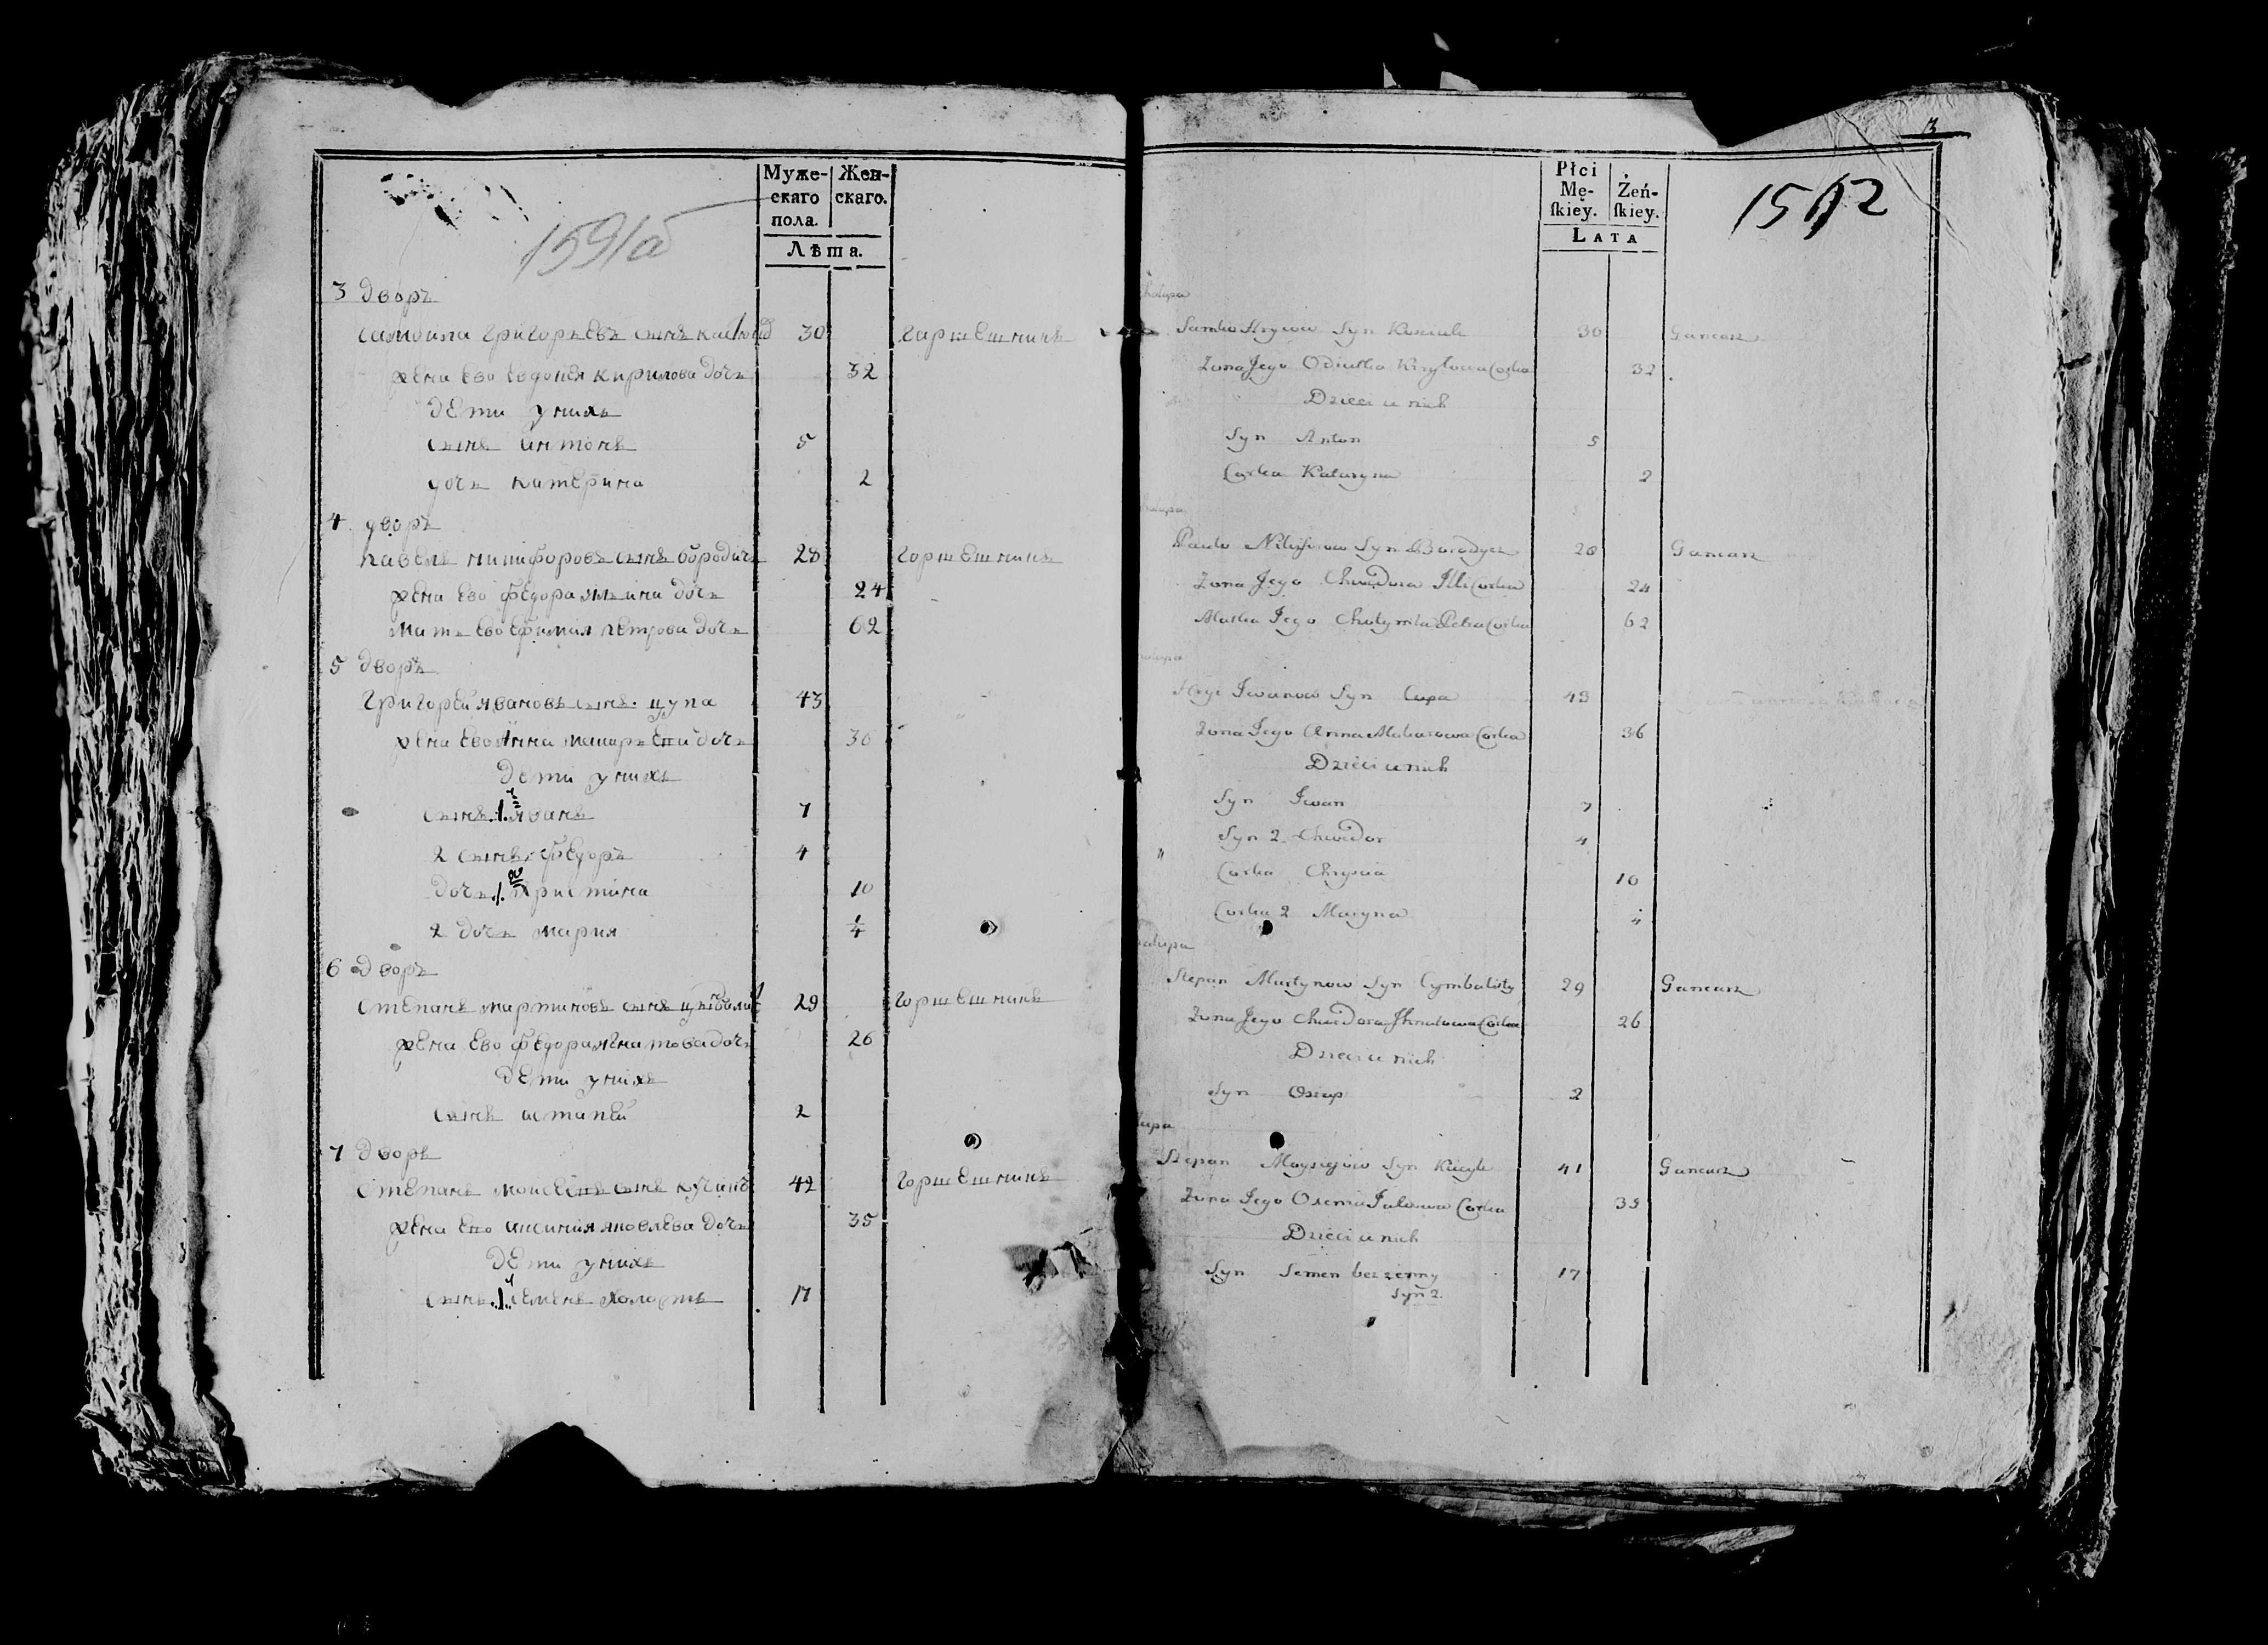 Муже-
скаго
пола.
Жен-
скаго.
Лѣта.
1591а
3 дворъ
самоила григорьевъ сынъ 30 гаршешникъ
жена ево евдокея кирилова дочь 32
дети унихъ
сынъ антонъ 5
дочь катерина 2
4 дворъ
павелъ никифоровъ сынъ бородичъ 28 горшешникъ
жена ево федора ильина дочь 24
мать ево ефимия петрова дочь 62
5 дворъ
григорей ивановъ сынъ цупа 43
жена ево анна дочь 36
дети унихъ
сынъ 1 иванъ 7
2 сынъ федоръ 4
дочь 1 христина 10
2 дочь мария 1/4
6 дворъ
степанъ мартиновъ сынъ 29 горшешникъ
жена ево федора игнатова дочь 26
дети унихъ
сынъ астапей 2
7 дворъ
степанъ моисеевъ сынъ кучикъ 42 горшешникъ
жена ево аксиния яковлева дочь 35
дети унихъ
сынъ 1 семенъ холостъ 17
3
Płci
Mę-
ſkiey.
Żeń-
ſkiey.
LATA
1512
Chałupa
Samko Hrycow Syn 30 Gancarz
Zona Jego Odiutka Kiryłowa Corka 32
Dzieci u nich
Syn Anton 5
Corka Kataryna 2
Pawło Nikiforow Syn Borodycz 28 Gancarz
Zona Jego Chwedora Illi Corka 24
Matka Jego Chołymila Petra Corka 62
Hryć Iwanow Syn Cupa 43
Zona Jego Anna Makarowa Corka 36
Dzieci u nich
Syn Iwan 7
Syn 2 Chwedor 4
Corka Chrysia 10
Corka 2 Maryna 1/4
Stepan Martynow Syn Cymbalisty 29 Gancarz
Zona Jego Chwedora Ihnatowa Corka 26
Dzieci u nich
Syn Ostap 2
Stepan Moysiejow Syn Kuczyk 41 Gancarz
Zona Jego Oxenia Jakowa Corka 35
Dzieci u nich
Syn Semen bezzenny 17
Syn 2.